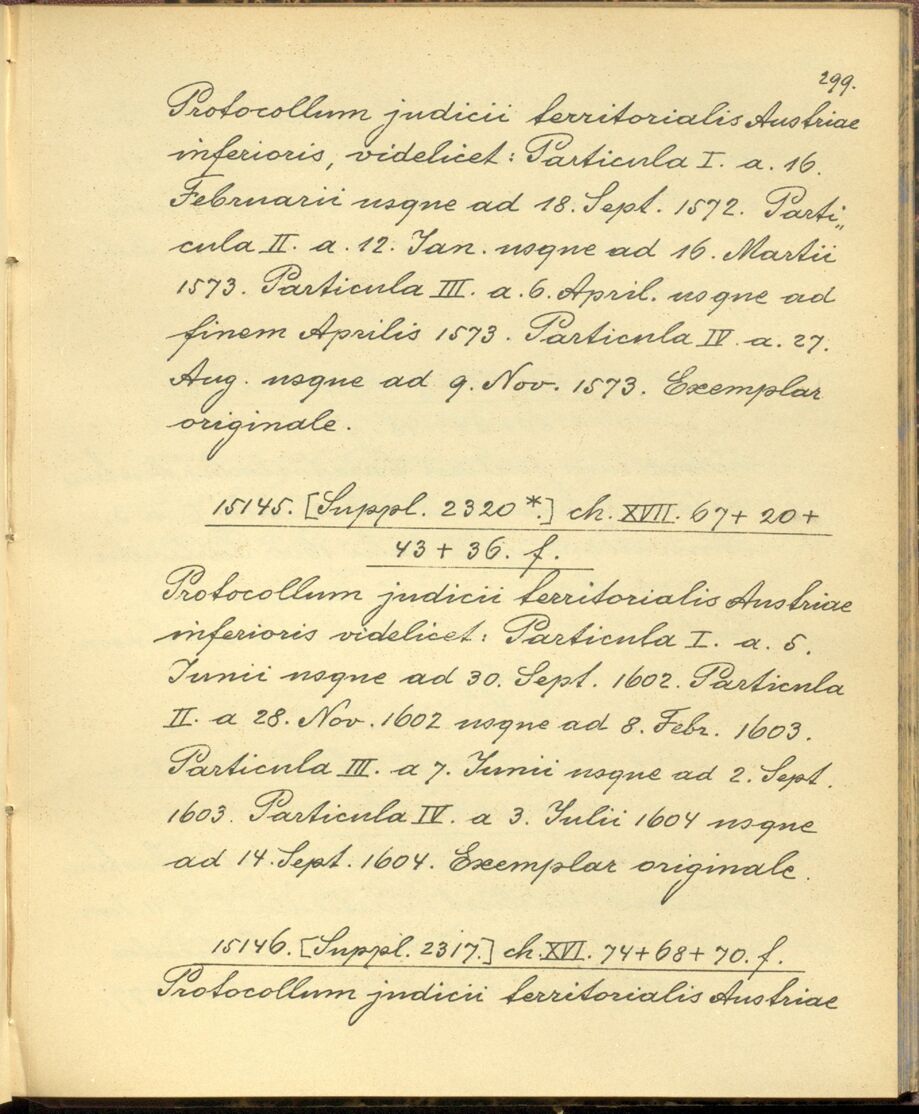 299.
Protocollum judicii territorialis Austriae
inferioris, videlicet: Particula I. a. 16.
Februarii usque ad 18. Sept. 1572. Parti„
cula II. a. 12. Jan. usque ad 16. Martii
1573. Particula III. a. 6. April. usque ad
finem Aprilis 1573. Particula IV. a. 27.
Aug. usque ad 9. Nov. 1573. Exemplar
originale.
15145. [Suppl. 2320*.] ch. XVII. 67+ 20+
43 + 36. f.
Protocollum judicii territorialis Austriae
inferioris videlicet: Particula I. a. 5.
Junii usque ad 30. Sept. 1602. Particula
II. a 28. Nov. 1602 usque ad 8. Febr. 1603.
Particula III. a 7. Junii usque ad 2. Sept.
1603. Particula IV. a 3. Julii 1604 usque
ad 14. Sept. 1604. Exemplar originale.
15146. [Suppl. 2317.] ch. XVI. 74+68+70. f.
Protocollum judicii territorialis Austriae